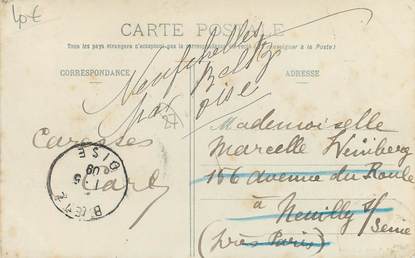 40€
CARTE POSTALE
Tous les pays étrangers n'acceptent pas la correspondance au (se renseigner à la Poste)
CORRESPONDANCE
ADRESSE
Neufchelles
par Betz
oise
Caresses
Mademoiselle
Marcelle Weinberg
156 avenue du Roule
à Neuilly s/
Seine
(près Paris)
BETZ
OISE
09